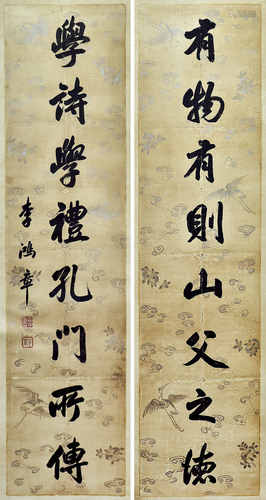 有物有則山父之德
學詩學禮孔門所傳
李鴻章